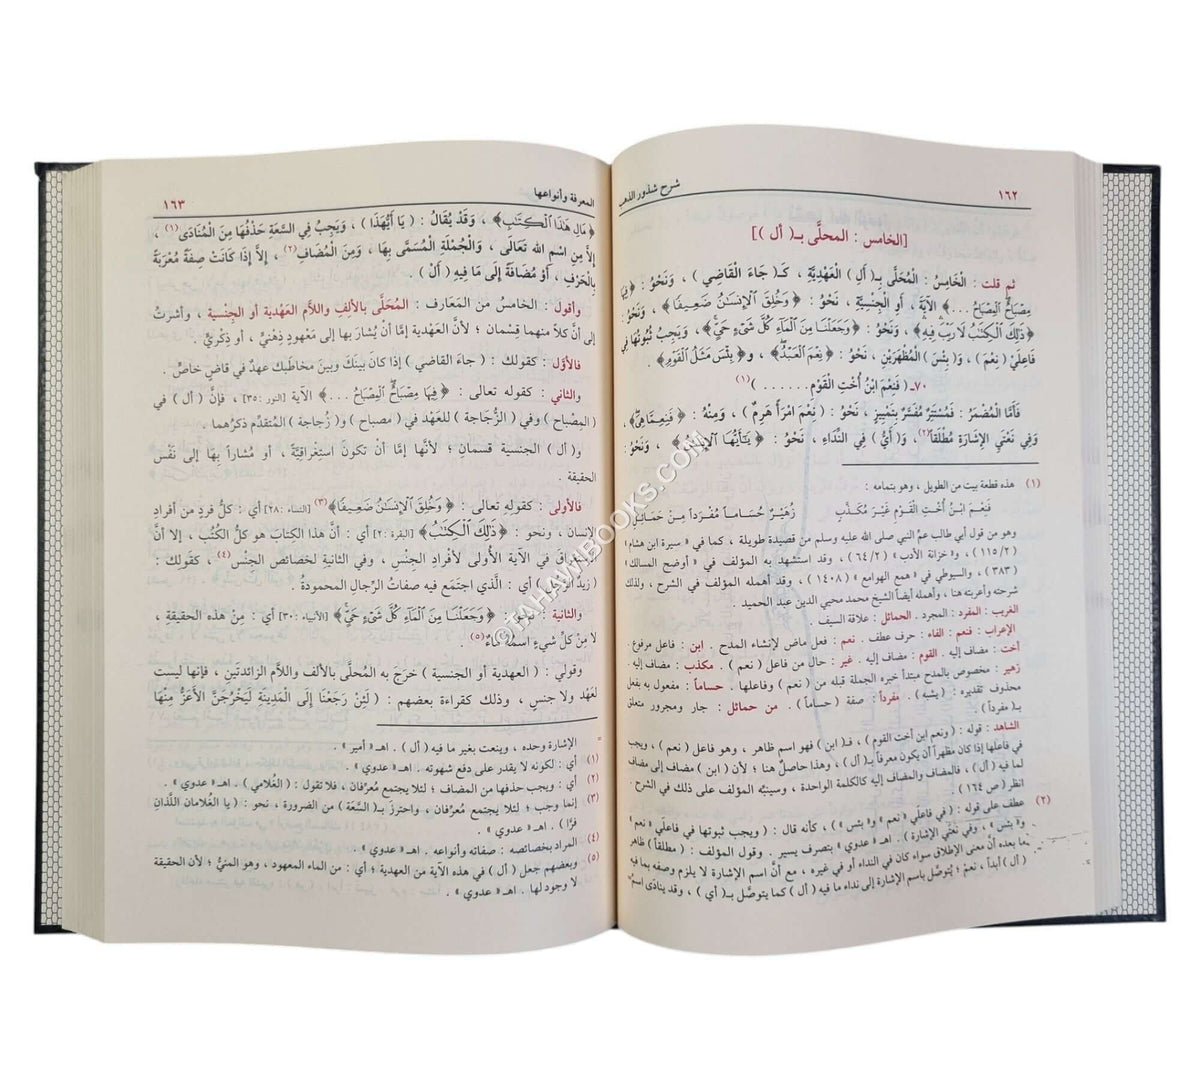 ١٦٢ شرح شذور الذهب
[الخامس : المحلَّى بـ( أل )]
ثم قلت : الْخَامِسُ : الْمُحَلَّى بـ( أَلِ ) الْعَهْدِيَّةِ ، كَـ( جَاءَ الْقَاضِي ) ، وَنَحْوُ : ﴿ فِيهَا
مِصْبَاحٌ الْمِصْبَاحُ ... ﴾ الآيَةَ ، أَوِ الْجِنْسِيَّةِ ، نَحْوُ : ﴿ وَخُلِقَ الْإِنسَانُ ضَعِيفًا ﴾ ، وَنَحْوُ :
﴿ ذَلِكَ الْكِتَابُ لَا رَيْبَ فِيهِ ﴾ ، وَنَحْوُ : ﴿ وَجَعَلْنَا مِنَ الْمَاءِ كُلَّ شَيْءٍ حَيٍّ ﴾ ، وَيَجِبُ ثُبُوتُهَا فِي
فَاعِلَيْ ( نِعْمَ ) ، وَ( بِئْسَ ) الْمُظْهَرَيْنِ ، نَحْوُ : ﴿ نِعْمَ الْعَبْدُ ﴾ ، و﴿ بِئْسَ مَثَلُ الْقَوْمِ ﴾ .
٧٠ـ ( فَنِعْمَ ابْنُ أُخْتِ الْقَوْمِ . . . . . . )(١)
فَأَمَّا الْمُضْمَرُ : فَمُسْتَتِرٌ مُفَسَّرٌ بِتَمْيِيزٍ ، نَحْوُ : ( نِعْمَ امْرَأً هَرِمٌ ) ، وَمِنْهُ : ﴿ فَنِعِمَّا هِيَ ﴾ ،
وَفِي نَعْتَيِ الإِشَارَةِ مُطْلَقاً(٢) ، وَ( أَيِّ ) فِي النِّدَاءِ ، نَحْوُ : ﴿ يَا أَيُّهَا الْإِنسَانُ ﴾ ، وَنَحْوُ :
(١) هذه قطعة بيت من الطويل ، وهو بتمامه :
فَنِعْمَ ابْنُ أُخْتِ الْقَوْمِ غَيْرَ مُكَذَّبِ زُهَيْرٌ حُسَاماً مُفْرَداً مِنْ حَمَائِلِ
وهو من قول أبي طالب عمّ النبي صلى الله عليه وسلم من قصيدة طويلة ، كما في « سيرة ابن هشام »
( ١١٥/٢ ) ، و« خزانة الأدب » ( ٦٤/٢ ) ، وقد استشهد به المؤلف في « أوضح المسالك »
( ٣٨٣ ) ، والسيوطي في « همع الهوامع » ( ١٤٠٨ ) ، وقد أهمله المؤلف في الشرح ، ولذلك
شرحته وأعربته هنا ، وأهمله أيضاً الشيخ محمد محيي الدين عبد الحميد .
الغريب : المفرد : المجرد . الحمائل : علاقة السيف .
الإعراب : فنعم : الفاء : حرف عطف . نعم : فعل ماض لإنشاء المدح . ابن : فاعل مرفوع .
أخت : مضاف إليه . القوم : مضاف إليه . غير : حال من فاعل ( نعم ) . مكذب : مضاف إليه .
زهير : مخصوص بالمدح مبتدأ خبره الجملة قبله من ( نعم ) وفاعلها . حساماً : مفعول به بفعل
محذوف تقديره : ( يشبه ) . مفرداً : صفة ( حساماً ) . من حمائل : جار ومجرور متعلق
بـ( مفرد ) .
الشاهد : قوله : ( ونعم ابن أخت القوم ) ، فـ( ابن ) فهو اسم ظاهر ، وهو فاعل ( نعم ) ، ويجب
في فاعلها إذا كان مظهراً أن يكون معرفاً بـ( أل ) ، وهذا حاصل هنا ؛ لأن ( ابن ) مضاف إلى مضاف
لما فيه ( أل ) ، فالمضاف والمضاف إليه كالكلمة الواحدة ، وسينبّه المؤلف على ذلك في الشرح .
انظر ( ص ١٦٤ )
(٢) عطف على قوله : ( في فاعلَي « نعم » و« بئس » ) ، كأنه قال : ( ويجب ثبوتها في فاعلَي « نعم »
و« بئس » ، وفي نعتَي الإشارة ) . اهـ « عدوي » بتصرف يسير . وقول المؤلف : ( مطلقاً ) ظاهر
بما بعده أن معنى الإطلاق سواء كان في النداء أو في غيره ، مع أنَّ اسم الإشارة لا يلزم وصفه بما فيه
( أل ) أبداً ، نعم ؛ يُتوصَّل باسم الإشارة إلى نداء ما فيه ( أل ) كما يتوصَّل بـ( أي ) ، وقد ينادَى اسم =
المعرفة وأنواعها ١٦٣
﴿ مَالِ هَذَا الْكِتَابِ ﴾ ، وَقَدْ يُقَالُ : ( يَا أَيُّهَذَا ) ، وَيَجِبُ فِي السَّعَةِ حَذْفُهَا مِنَ الْمُنَادَى(١) ،
إِلاَّ مِنِ اسْمِ الله تَعَالَى ، وَالْجُمْلَةِ الْمُسَمَّى بِهَا ، وَمِنَ الْمُضَافِ(٢) ، إِلاَّ إِذَا كَانَتْ صِفَةً مُعْرَبَةً
بِالْحَرْفِ ، أَوْ مُضَافَةً إِلَى مَا فِيهِ ( أَلْ ) .
وأقول : الخامسُ من المَعارف : المُحلَّى بالألفِ واللاَّمِ العَهْدية أو الجِنْسية ، وأشرتُ
إلى أنَّ كلاًّ منهما قِسْمان ؛ لأنَّ العَهْدية إمَّا أن يُشارَ بها إلى مَعْهودٍ ذِهْنيٍّ ، أو ذِكْريٍّ .
فالأوَّل : كقولك : ( جاءَ القاضي ) إذا كانَ بينَكَ وبينَ مخاطَبِك عهدٌ في قاضٍ خاصٍّ .
والثاني : كقوله تعالى : ﴿ فِيهَا مِصْبَاحٌ الْمِصْبَاحُ ... ﴾ الآية [النور : ٣٥] ، فإنَّ ( أل ) في
( المِصْباح ) وفي ( الزُّجاجة ) للعَهْد في ( مِصباح ) و( زُجاجة ) المُتقدِّمِ ذكرُهما .
و( أل ) الجنسية قسمان ؛ لأنها إمَّا أن تكونَ استغراقيَّةً ، أو مُشاراً بِهَا إلى نَفْسِ
الحقيقة .
فالأولى : كقوله تعالى : ﴿ وَخُلِقَ الْإِنسَانُ ضَعِيفًا ﴾(٣) [النساء : ٢٨] أي : كلُّ فردٍ من أفرادِ
الإنسان ، ونحو : ﴿ ذَلِكَ الْكِتَابُ ﴾ [البقرة : ٢] أي : أنَّ هذا الكِتابَ هو كلُّ الكُتُب ، إلا أنَّ
في الآية الأُولى لأفرادِ الجِنْسِ ، وفي الثانية لخصائصِ الجِنْس(٤) ، كقولك :
( زيدٌ الرجل ) أي : الَّذي اجتَمَع فيه صفاتُ الرِّجالِ المحمودةُ .
والثانية : نحو : ﴿ وَجَعَلْنَا مِنَ الْمَاءِ كُلَّ شَيْءٍ حَيٍّ ﴾ [الأنبياء : ٣٠] أي : مِنْ هذه الحقيقةِ ،
لا مِنْ كلِّ شيءٍ اسمُهُ مَاءٌ(٥) .
وقولي : ( العهدية أو الجنسية ) خرَجَ به المُحلَّى بالألفِ واللاَّمِ الزائدتَين ، فإنها ليست
لعَهْدٍ ولا جنسٍ ، وذلك كقراءةِ بعضِهم : ( لَئِنْ رَجَعْنَا إِلَى الْمَدِينَةِ لَيَخْرُجَنَّ الأَعَزُّ مِنْهَا
= الإشارة وحده ، وينعت بغير ما فيه ( أل ) . اهـ « أمير » .
(١) أي : لكونه لا يقدر على دفع شهوته . اهـ « عدوي » .
(٢) أي : ويجب حذفها من المضاف ؛ لئلا يجتمع معرِّفان ، فلا تقول : ( الغُلامي ) . اهـ « عدوي » .
(٣) إنما وجب ؛ لئلا يجتمع مُعرِّفان ، واحترز بـ( السَّعَة ) من الضرورة ، نحو : ( يا الغلامان اللَّذان
فرَّا ) . اهـ « عدوي » .
(٤) المراد بخصائصه : صفاته وأنواعه . اهـ « عدوي » .
(٥) وبعضهم جعل ( أل ) في هذه الآية من العهدية ؛ أي : من الماء المعهود ، وهو المنيُّ ؛ لأن الحقيقة
لا وجود لها . اهـ « عدوي » .
©TAHAWIBOOKS.COM